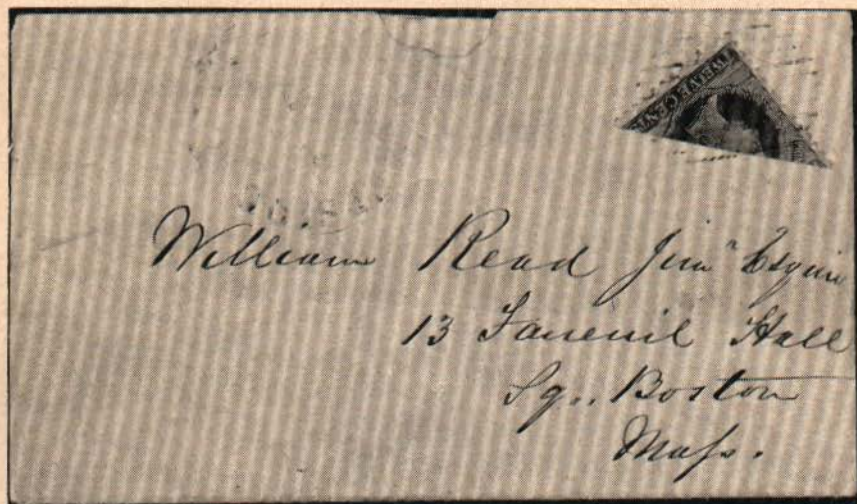 TWELVE CENTS
William Read Junr Esquire
13 Faneuil Hall
Sq., Boston
Mass.